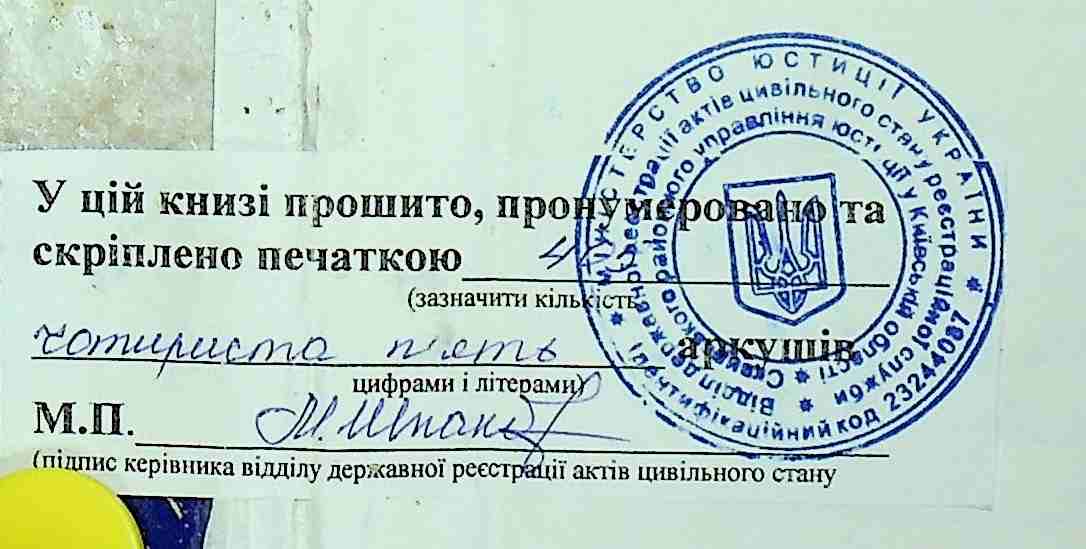 У цій книзі прошито, пронумеровано та
скріплено печаткою
(зазначити кількість
чотириста п'ять аркушів
цифрами і літерами)
М.П.
(підпис керівника відділу державної реєстрації актів цивільного стану
МІНІСТЕРСТВО ЮСТИЦІЇ УКРАЇНИ
Ідентифікаційний код 23244087
Відділ державної реєстрації актів цивільного стану реєстраційної служби
районного управління юстиції у Київській області